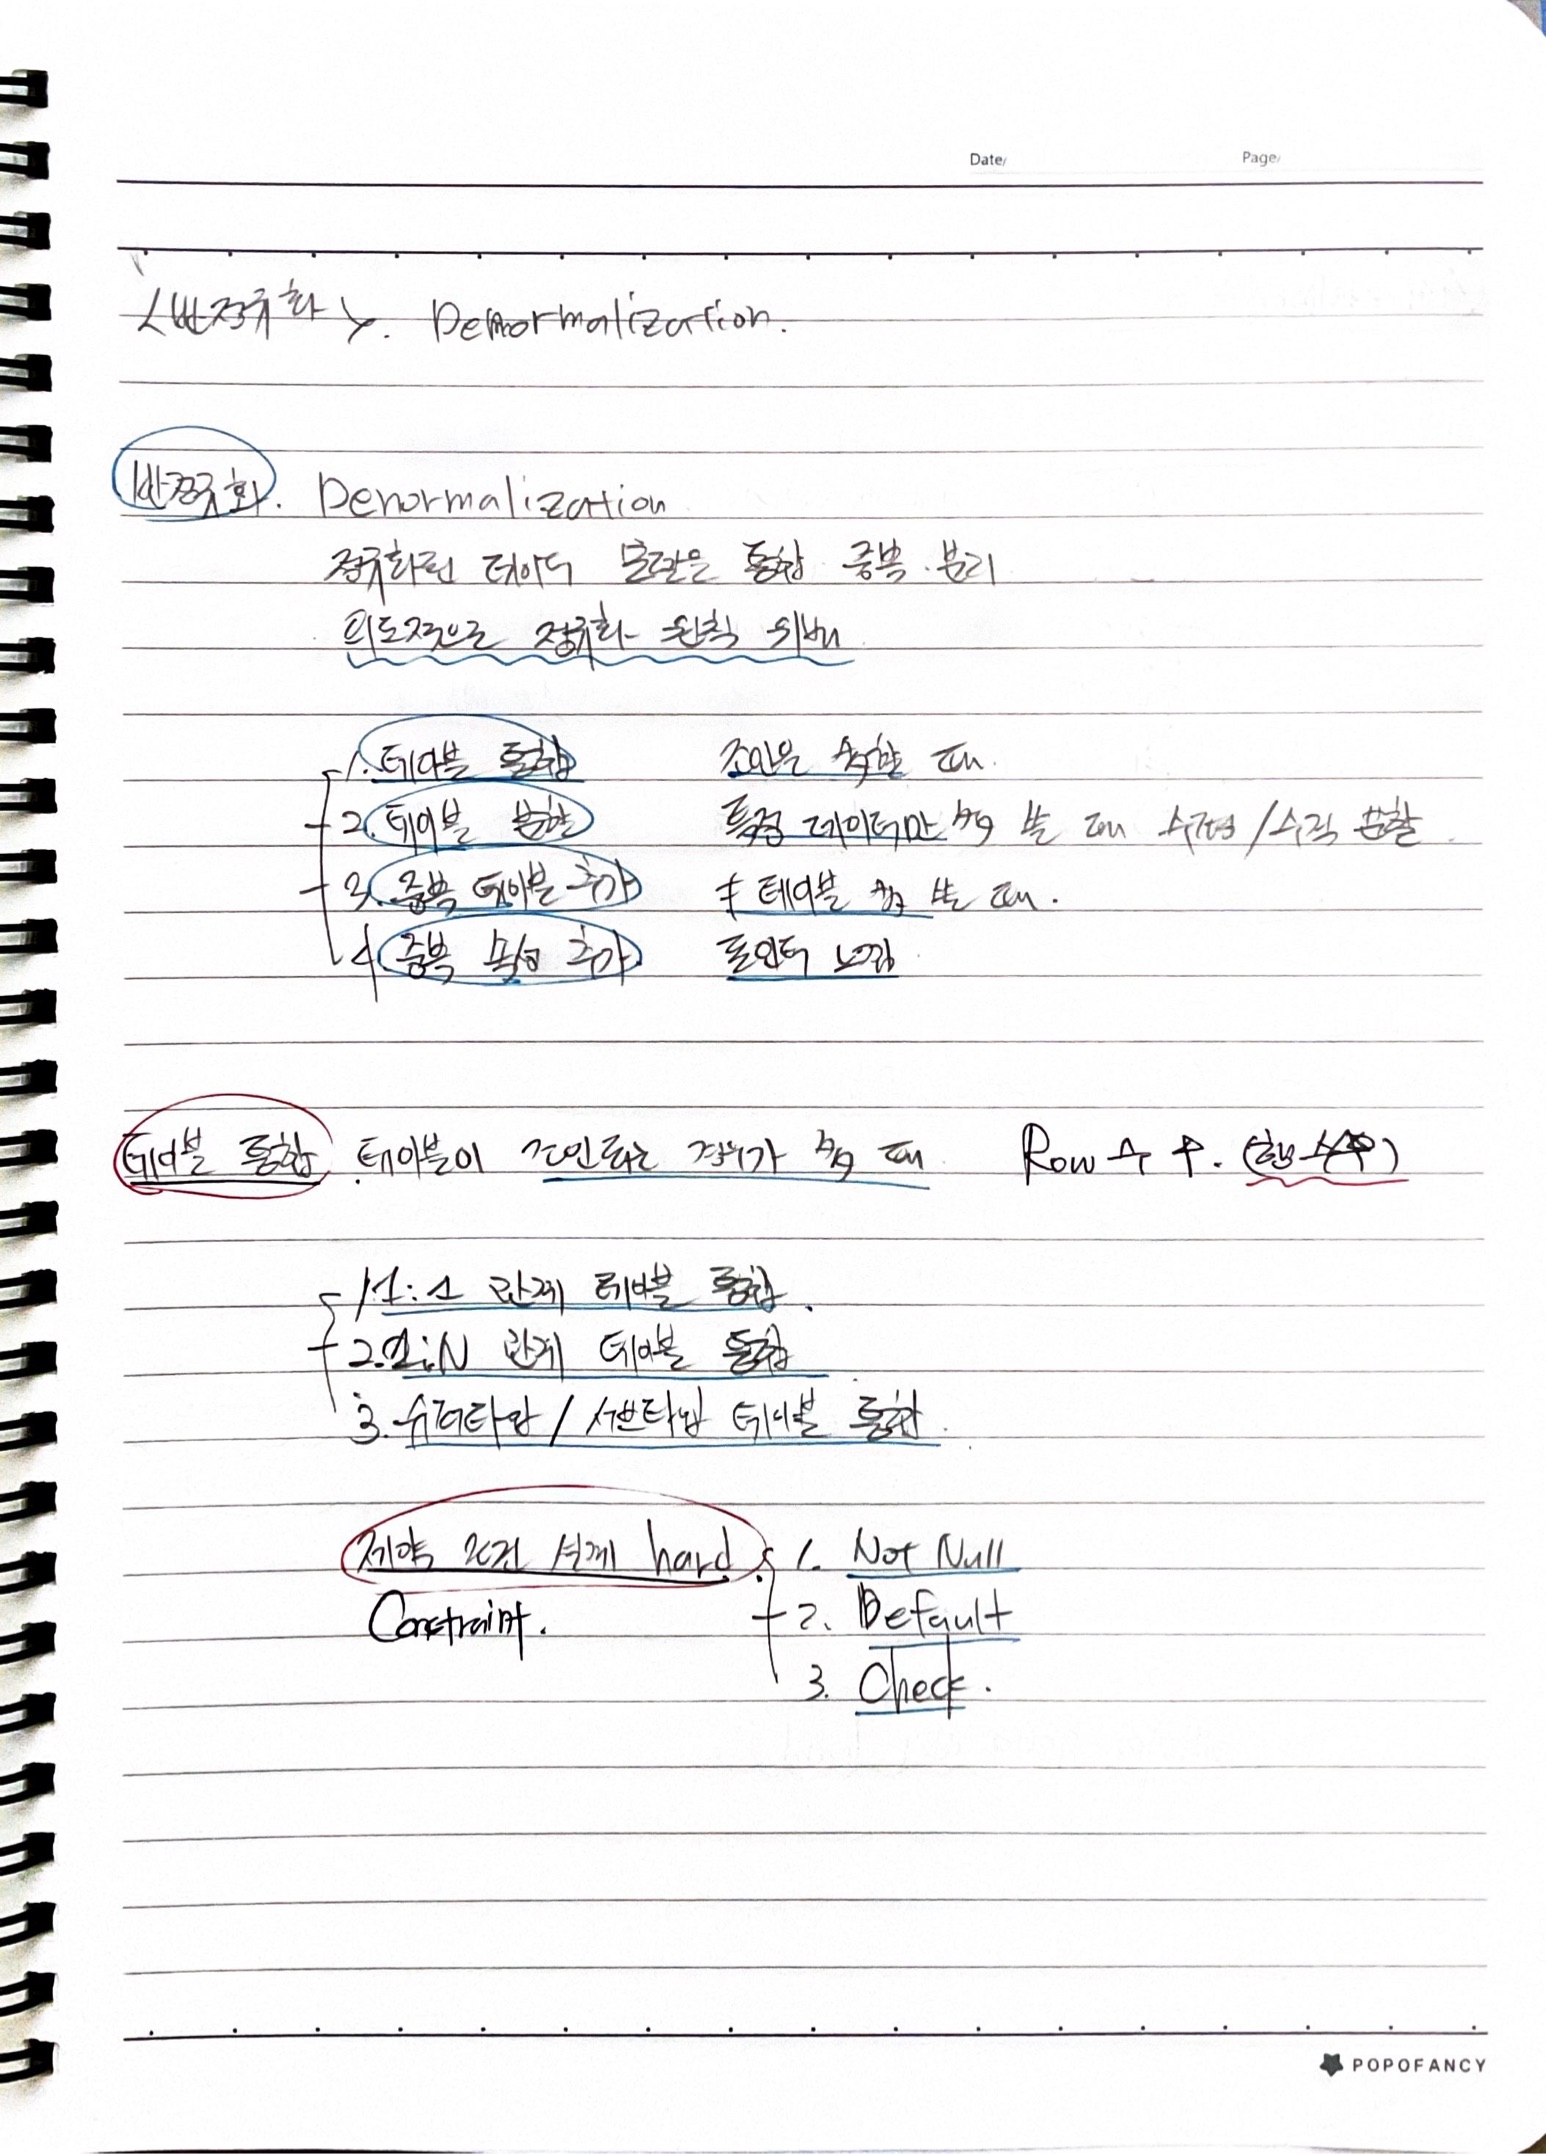 Date/ Page/
<반정규화>. Denormalization.
반정규화. Denormalization
정규화된 데이터 모델을 통합 중복 분리
의도적으로 정규화 원칙 위배
1. 테이블 통합 조인을 할 때.
2. 테이블 분할 특정 데이터만 쓸 때 수평/수직 분할
3. 중복 테이블 추가 테이블 쓸 때.
4 중복 속성 추가 포인터 느낌
테이블 통합. 테이블이 조인되는 경우가 많을 때 Row 수 ↑. (행 수↑)
1. 1:1 관계 테이블 통합.
2. 1:N 관계 테이블 통합
3. 슈퍼타입/서브타입 테이블 통합.
제약 조건 설계 hard. 1. Not Null
Constraint. 2. Default
3. Check.
POPOFANCY